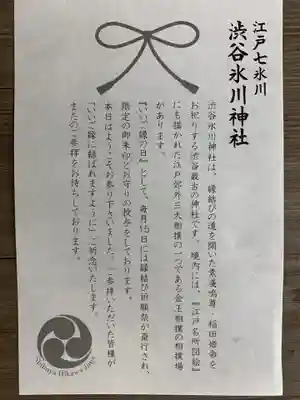 江戸七氷川
渋谷氷川神社
渋谷氷川神社は、縁結びの道を開いた素盞鳴尊・稲田姫命を
お祀りする渋谷最古の神社です。境内には、『江戸名所図絵』
にも描かれた江戸郊外三大相撲の一つである金王相撲の相撲場
があります。
『いいご縁の日』として、毎月15日には縁結び祈願祭が斎行され、
限定の御朱印とお守りの授与をしております。
本日はようこそお参り下さいました。ご参拝いただいた皆様が
『いいご縁に結ばれますように』ご祈念いたします。
またのご参拝をお待ちしております。
Shibuya Hikawa Jinja